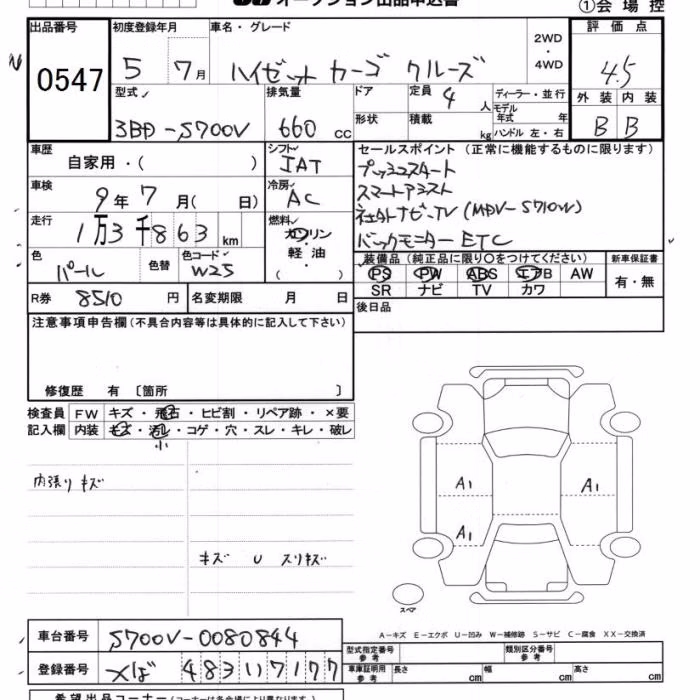 オークション出品申込書
①会場控
出品番号 初度登録年月 車名・グレード 2WD 評価点
0547 5 7月 ハイゼット カーゴ クルーズ ・ 4.5
4WD
型式 排気量 ドア 定員 4人 ディーラー・並行 外装 内装
3BD-S700V 660 cc 形状 積載 kg モデル年式 年 B B
ハンドル 左・右
車歴 自家用・( ) シフト IAT セールスポイント (正常に機能するものに限ります)
車検 9年7月( 日) 冷房 AC プッシュスタート
スマートアシスト
走行 1万3千863 km 燃料 ガソリン ・TV (MDV-S710W)
軽油
( )
バックモニター ETC
色 パール 色替 色コード W25 装備品 (純正品に限り○をつけてください) 新車保証書
PS PW ABS エアB AW 有・無
SR ナビ TV カワ
R券 8510 円 名変期限 月 日 後日品
注意事項申告欄(不具合内容等は具体的に記入して下さい)
修復歴 有 〔箇所 〕
検査員 FW キズ・飛石・ヒビ割・リペア跡・×要
記入欄 内装 キズ・汚レ・コゲ・穴・スレ・キレ・破レ
小
内張り キズ
A1 A1
A1
キズ U スリキズ
スペア
A-キズ E-エクボ U-凹み W-補修跡 S-サビ C-腐食 XX-交換済
車台番号 S700V-0080844
型式指定番号 類別区分番号
登録番号 つくば 483 い 7177
車庫証明用参考 長さ cm 幅 cm 高さ cm
希望出品コーナー(コーナーは各会場により異なります)